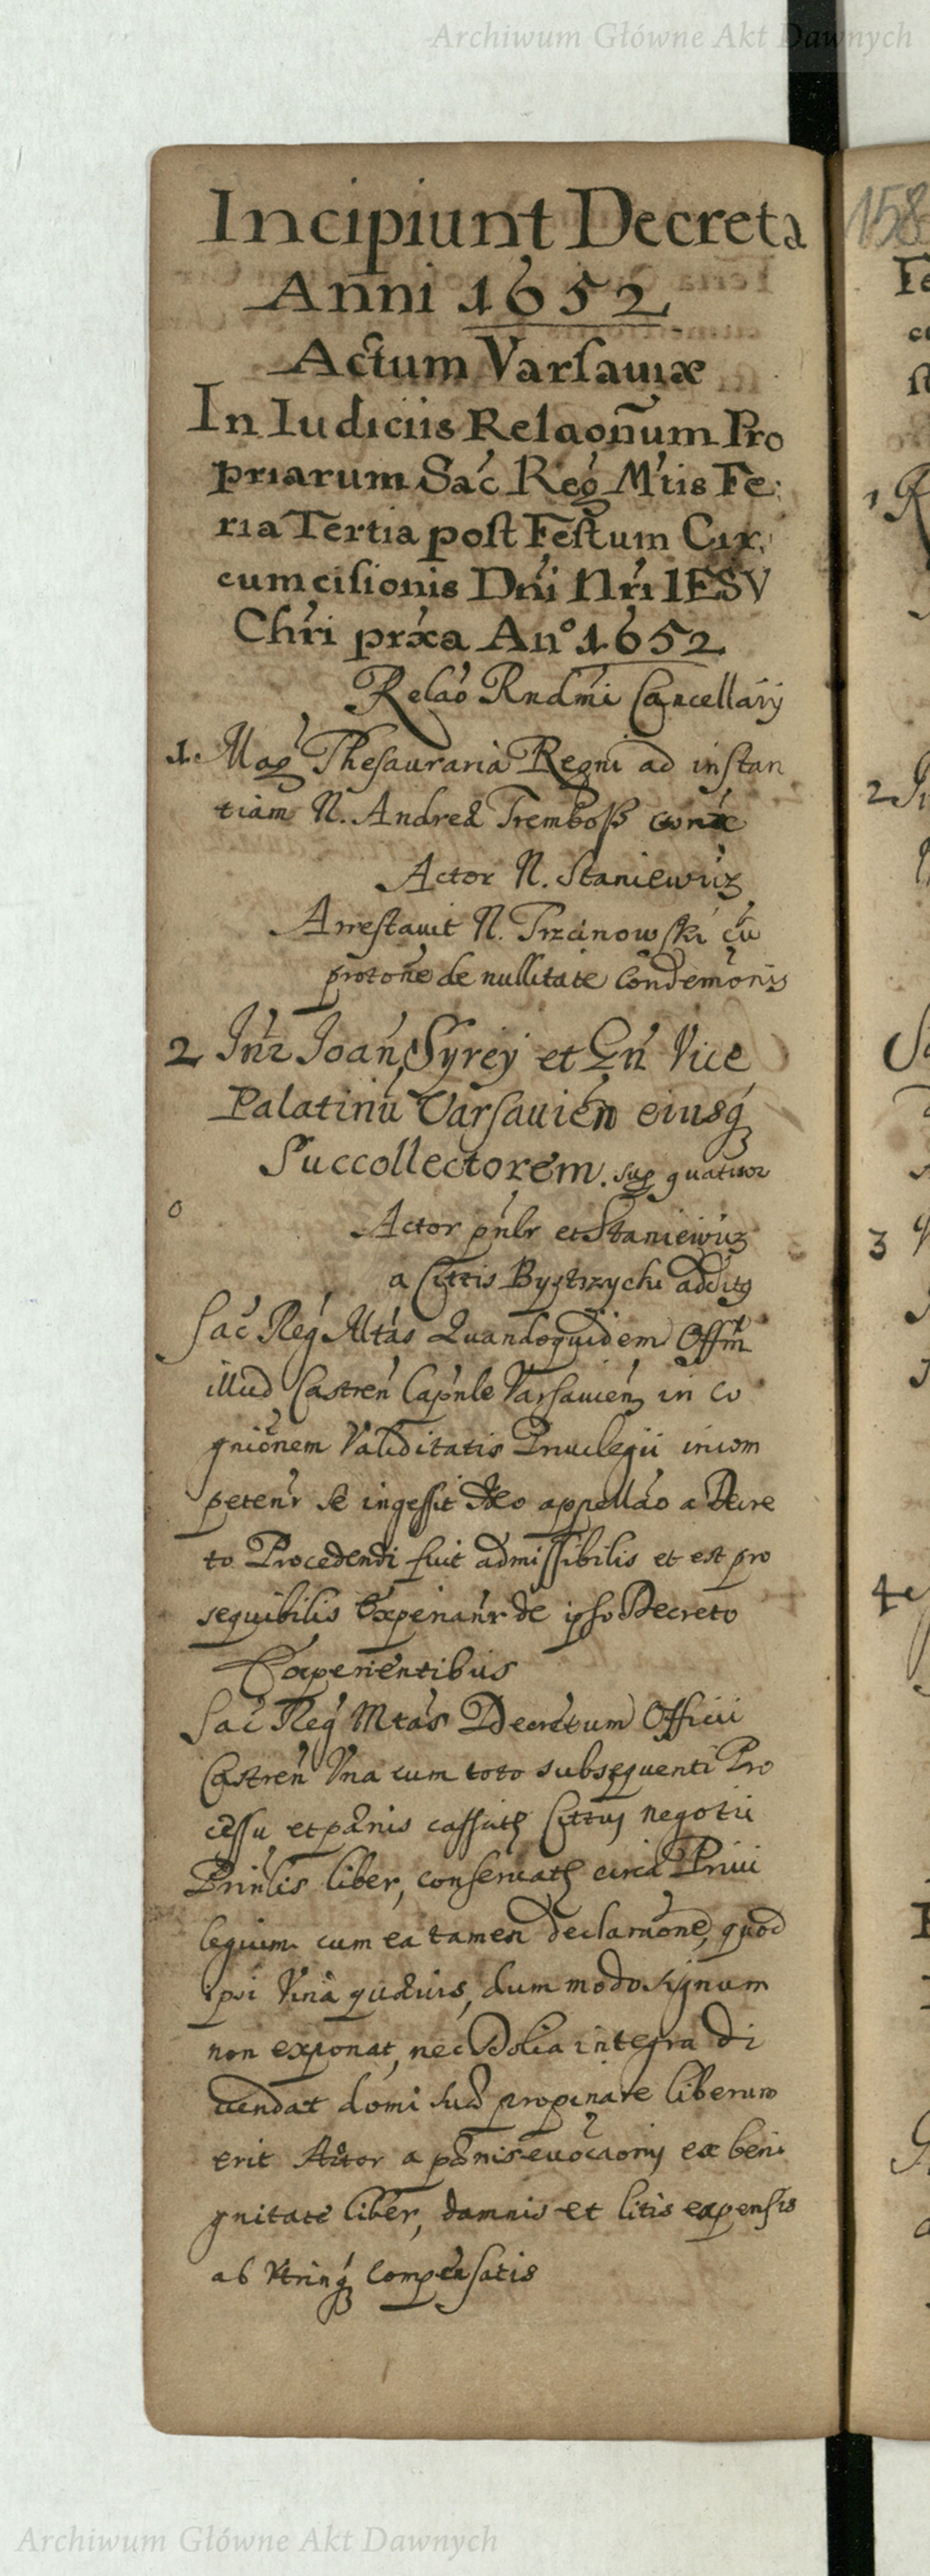 Archiwum Główne Akt Dawnych
Incipiunt Decreta
Anni 1652
Actum Varsauiæ
In Iudiciis Relaoñum Pro
priarum Sac Reg Mtis Fe:
ria Tertia post Festum Cir,
cumcisionis Dni Nri IESV
Chri prxa An° 1652
Relao Rndmi Cancellarij
1. Mag Thesauraria Regni ad instan
tiam N. Andrea
Actor N. Staniewicz
Arrestauit N. Trzcinowski cũ
protoñe de nullitate Condemonis
2 Joan Syrey et Vice
Palatinũ Varsauien eiusq
Succollectorem. sup quatuor
Actor et Staniewicz
a Cittis Bystrzycki
Sac Reg Mtas Quandoquidem Offm
illud Castren Capnle Varsauien in co
gnionem Validitatis Priuilegii incom
petenr se ingessit Ideo appellao a Decre
to Procedendi fuit admissibilis et est pro
sequibilis Experianr de ipso Decreto
Experientibus
Sac Reg Mtas Decretum Officii
Castren Vna cum toto subsequenti Pro
cessu et pænis Citty negotii
liber, circa Priui
legium cum ea tamen declaraone, quod
ipsi Vina quæuis, dum modo signum
non exponat, nec Dolia integra di
uendat domi suæ propinare liberum
erit Actor a pænis euocaonis ex beni
gnitate liber, damnis et litis expensis
ab Vtrinq Compensatis
158
1
2
3
4
Archiwum Główne Akt Dawnych